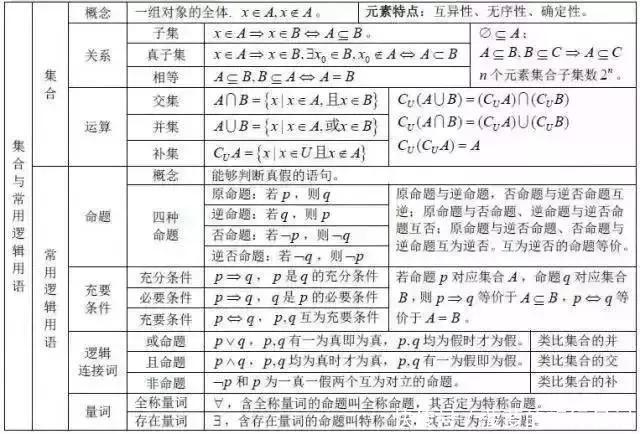 集合与常用逻辑用语
集合
概念
一组对象的全体. x∈A, x∉A。
元素特点：互异性、无序性、确定性。
关系
子集
x∈A⇒x∈B⇔A⊆B。
真子集
x∈A⇒x∈B,∃x₀∈B, x₀∉A⇔A⊂B
相等
A⊆B, B⊆A⇔A=B
∅⊆A;
A⊆B, B⊆C⇒A⊆C
n个元素集合子集数2ⁿ。
运算
交集
A∩B={x|x∈A,且x∈B}
并集
A∪B={x|x∈A,或x∈B}
补集
C_U A={x|x∈U且x∉A}
C_U(A∪B)=(C_U A)∩(C_U B)
C_U(A∩B)=(C_U A)∪(C_U B)
C_U(C_U A)=A
常用逻辑用语
命题
概念
能够判断真假的语句。
四种
命题
原命题：若p，则q
逆命题：若q，则p
否命题：若¬p，则¬q
逆否命题：若¬q，则¬p
原命题与逆命题，否命题与逆否命题互
逆；原命题与否命题、逆命题与逆否命
题互否；原命题与逆否命题、否命题与
逆命题互为逆否。互为逆否的命题等价。
充要
条件
充分条件
p⇒q，p是q的充分条件
必要条件
p⇒q，q是p的必要条件
充要条件
p⇔q，p,q互为充要条件
若命题p对应集合A，命题q对应集合
B，则p⇒q等价于A⊆B，p⇔q等
价于A=B。
逻辑
连接词
或命题
p∨q，p,q有一为真即为真，p,q均为假时才为假。
类比集合的并
且命题
p∧q，p,q均为真时才为真，p,q有一为假即为假。
类比集合的交
非命题
¬p和p为一真一假两个互为对立的命题。
类比集合的补
量词
全称量词
∀，含全称量词的命题叫全称命题，其否定为特称命题。
存在量词
∃，含存在量词的命题叫特称命题，其否定为全称命题。